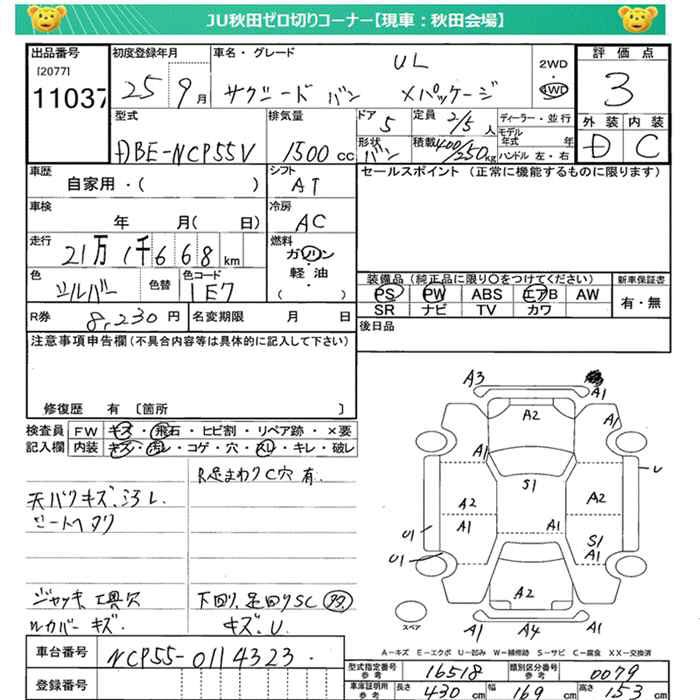 JU秋田ゼロ切りコーナー【現車：秋田会場】
出品番号
[2077]
11037
初度登録年月
25 9月
車名・グレード
UL
サクシード バン Xパッケージ
2WD
・
4WD
評価点
3
外装 内装
D C
型式
DBE-NCP55V
排気量
1500 cc
ドア
5
形状
バン
定員
2/5人
積載
400/250kg
ディーラー・並行
モデル年式 年
ハンドル 左・右
車歴
自家用・( )
シフト
AT
車検
年 月( 日)
冷房
AC
走行
21万1千668km
燃料
ガソリン
軽油
( )
色
シルバー
色替
色コード
1E7
R券
8,230円
名変期限 月 日
セールスポイント (正常に機能するものに限ります)
装備品(純正品に限り○をつけてください)
PS PW ABS エアB AW
SR ナビ TV カワ
新車保証書
有・無
後日品
注意事項申告欄(不具合内容等は具体的に記入して下さい)
修復歴 有 〔箇所 〕
検査員記入欄
FW キズ・飛石・ヒビ割・リペア跡・×要
内装 キズ・汚レ・コゲ・穴・スレ・キレ・破レ
R足まわりC穴有.
天バリキズ、ヨゴレ.
シートヘタリ
ジャッキ工具欠
ルカバーキズ.
下回り、足回りSC
キズ、U.
A3
A1
A2
S1
A2
A1
A1
A2
S1
A1
U
U1
U1
A2
A1
A4
A1
スペア
A－キズ E－エクボ U－凹み W－補修跡 S－サビ C－腐食 XX－交換済
車台番号
NCP55-0114323.
登録番号
型式指定番号
参考
16518
類別区分番号
参考
0079
車庫証明用
参考
長さ
430cm
幅
169cm
高さ
153cm